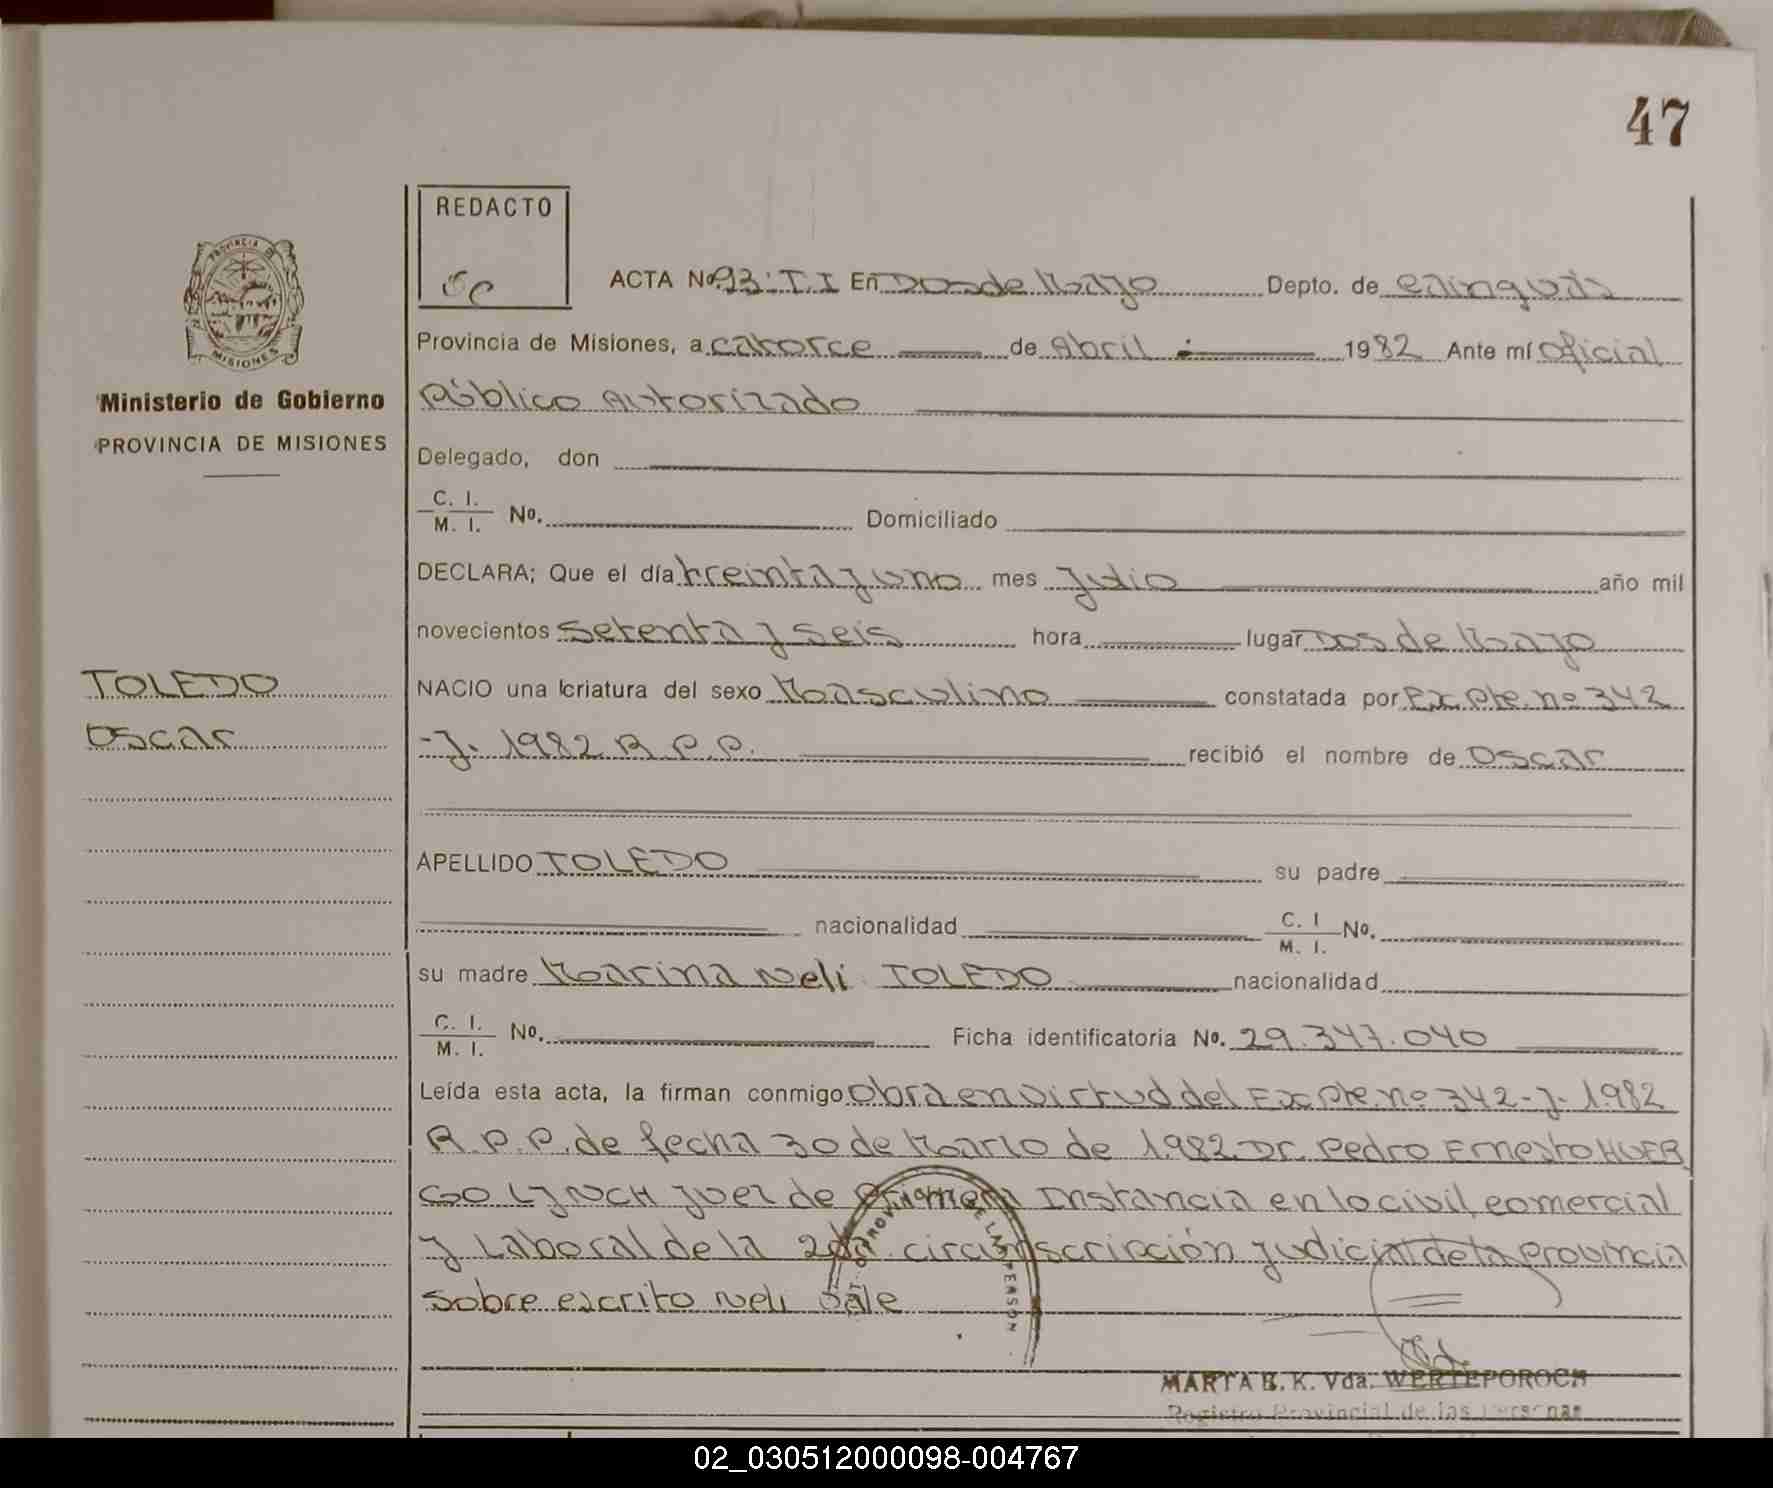 47
REDACTO
ACTA No. 93: T. I En Dos de Mayo Depto. de Cainguás
Provincia de Misiones, a catorce de Abril 1982 Ante mí Oficial
Público Autorizado
PROVINCIA DE
MISIONES
Ministerio de Gobierno
PROVINCIA DE MISIONES
Delegado, don
C. I.
M. I. No. Domiciliado
DECLARA; Que el día treinta y uno mes Julio año mil
novecientos setenta y seis hora lugar Dos de Mayo
TOLEDO
Oscar
NACIO una criatura del sexo Masculino constatada por Expte. nº 342
-J- 1982 R.P.P. recibió el nombre de Oscar
APELLIDO TOLEDO su padre
nacionalidad C. I M. I. No.
su madre Marina Neli TOLEDO nacionalidad
C. I.
M. I. No. Ficha identificatoria No. 29.347.040
Leída esta acta, la firman conmigo Obra en virtud del Expte. nº 342-J- 1982
R.P.P. de fecha 30 de Marzo de 1982. Dr. Pedro Ernesto HUER
GO LYNCH Juez de Primera Instancia en lo civil, comercial
y Laboral de la 2da. circunscripción Judicial de la provincia
sobre escrito Neli Vale
MARTA K. Vda. WERTEPOROCH
Registro Provincial de las Personas
02_030512000098-004767